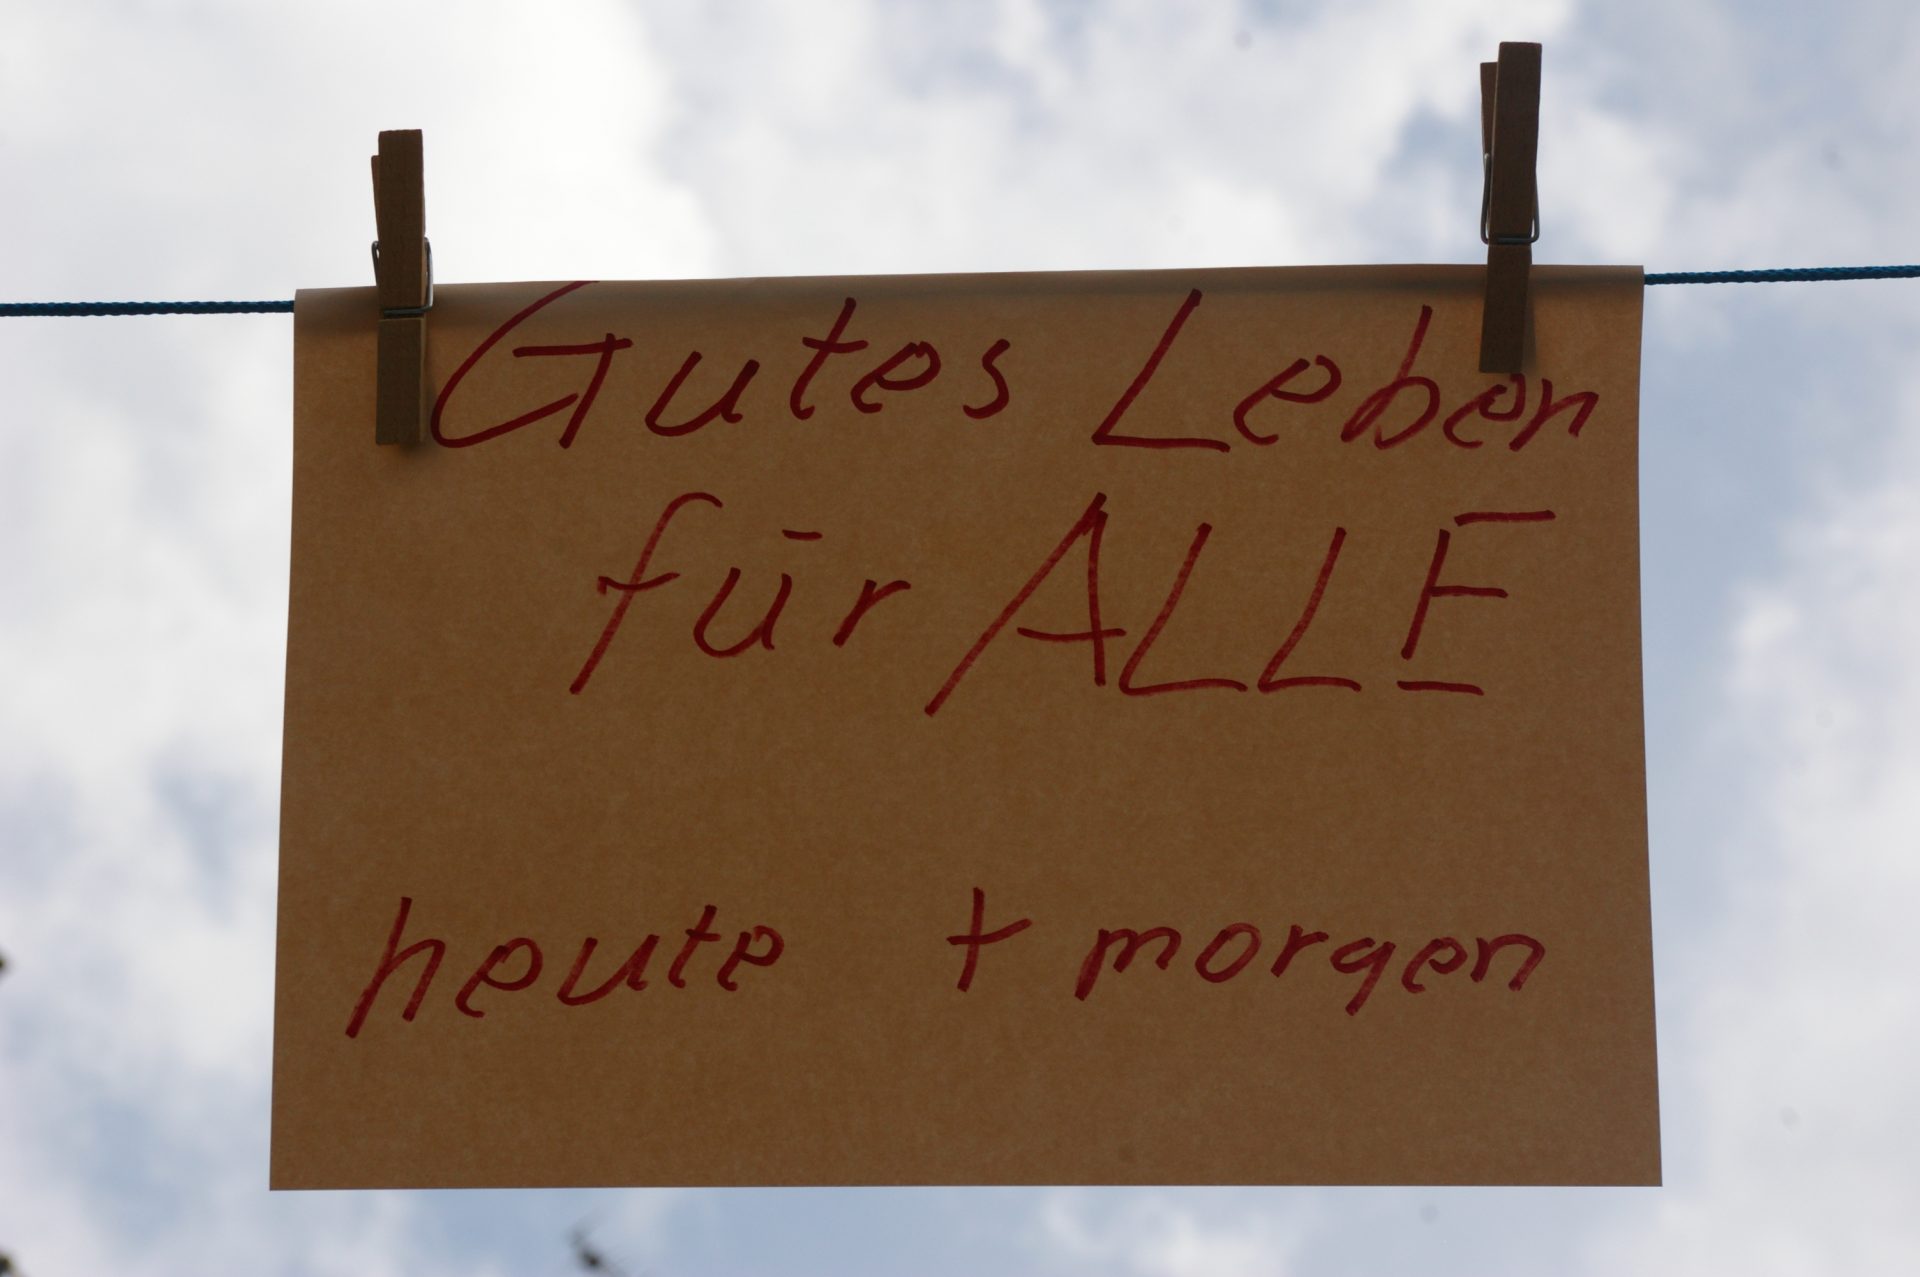 Gutes Leben
für ALLE
heute + morgen